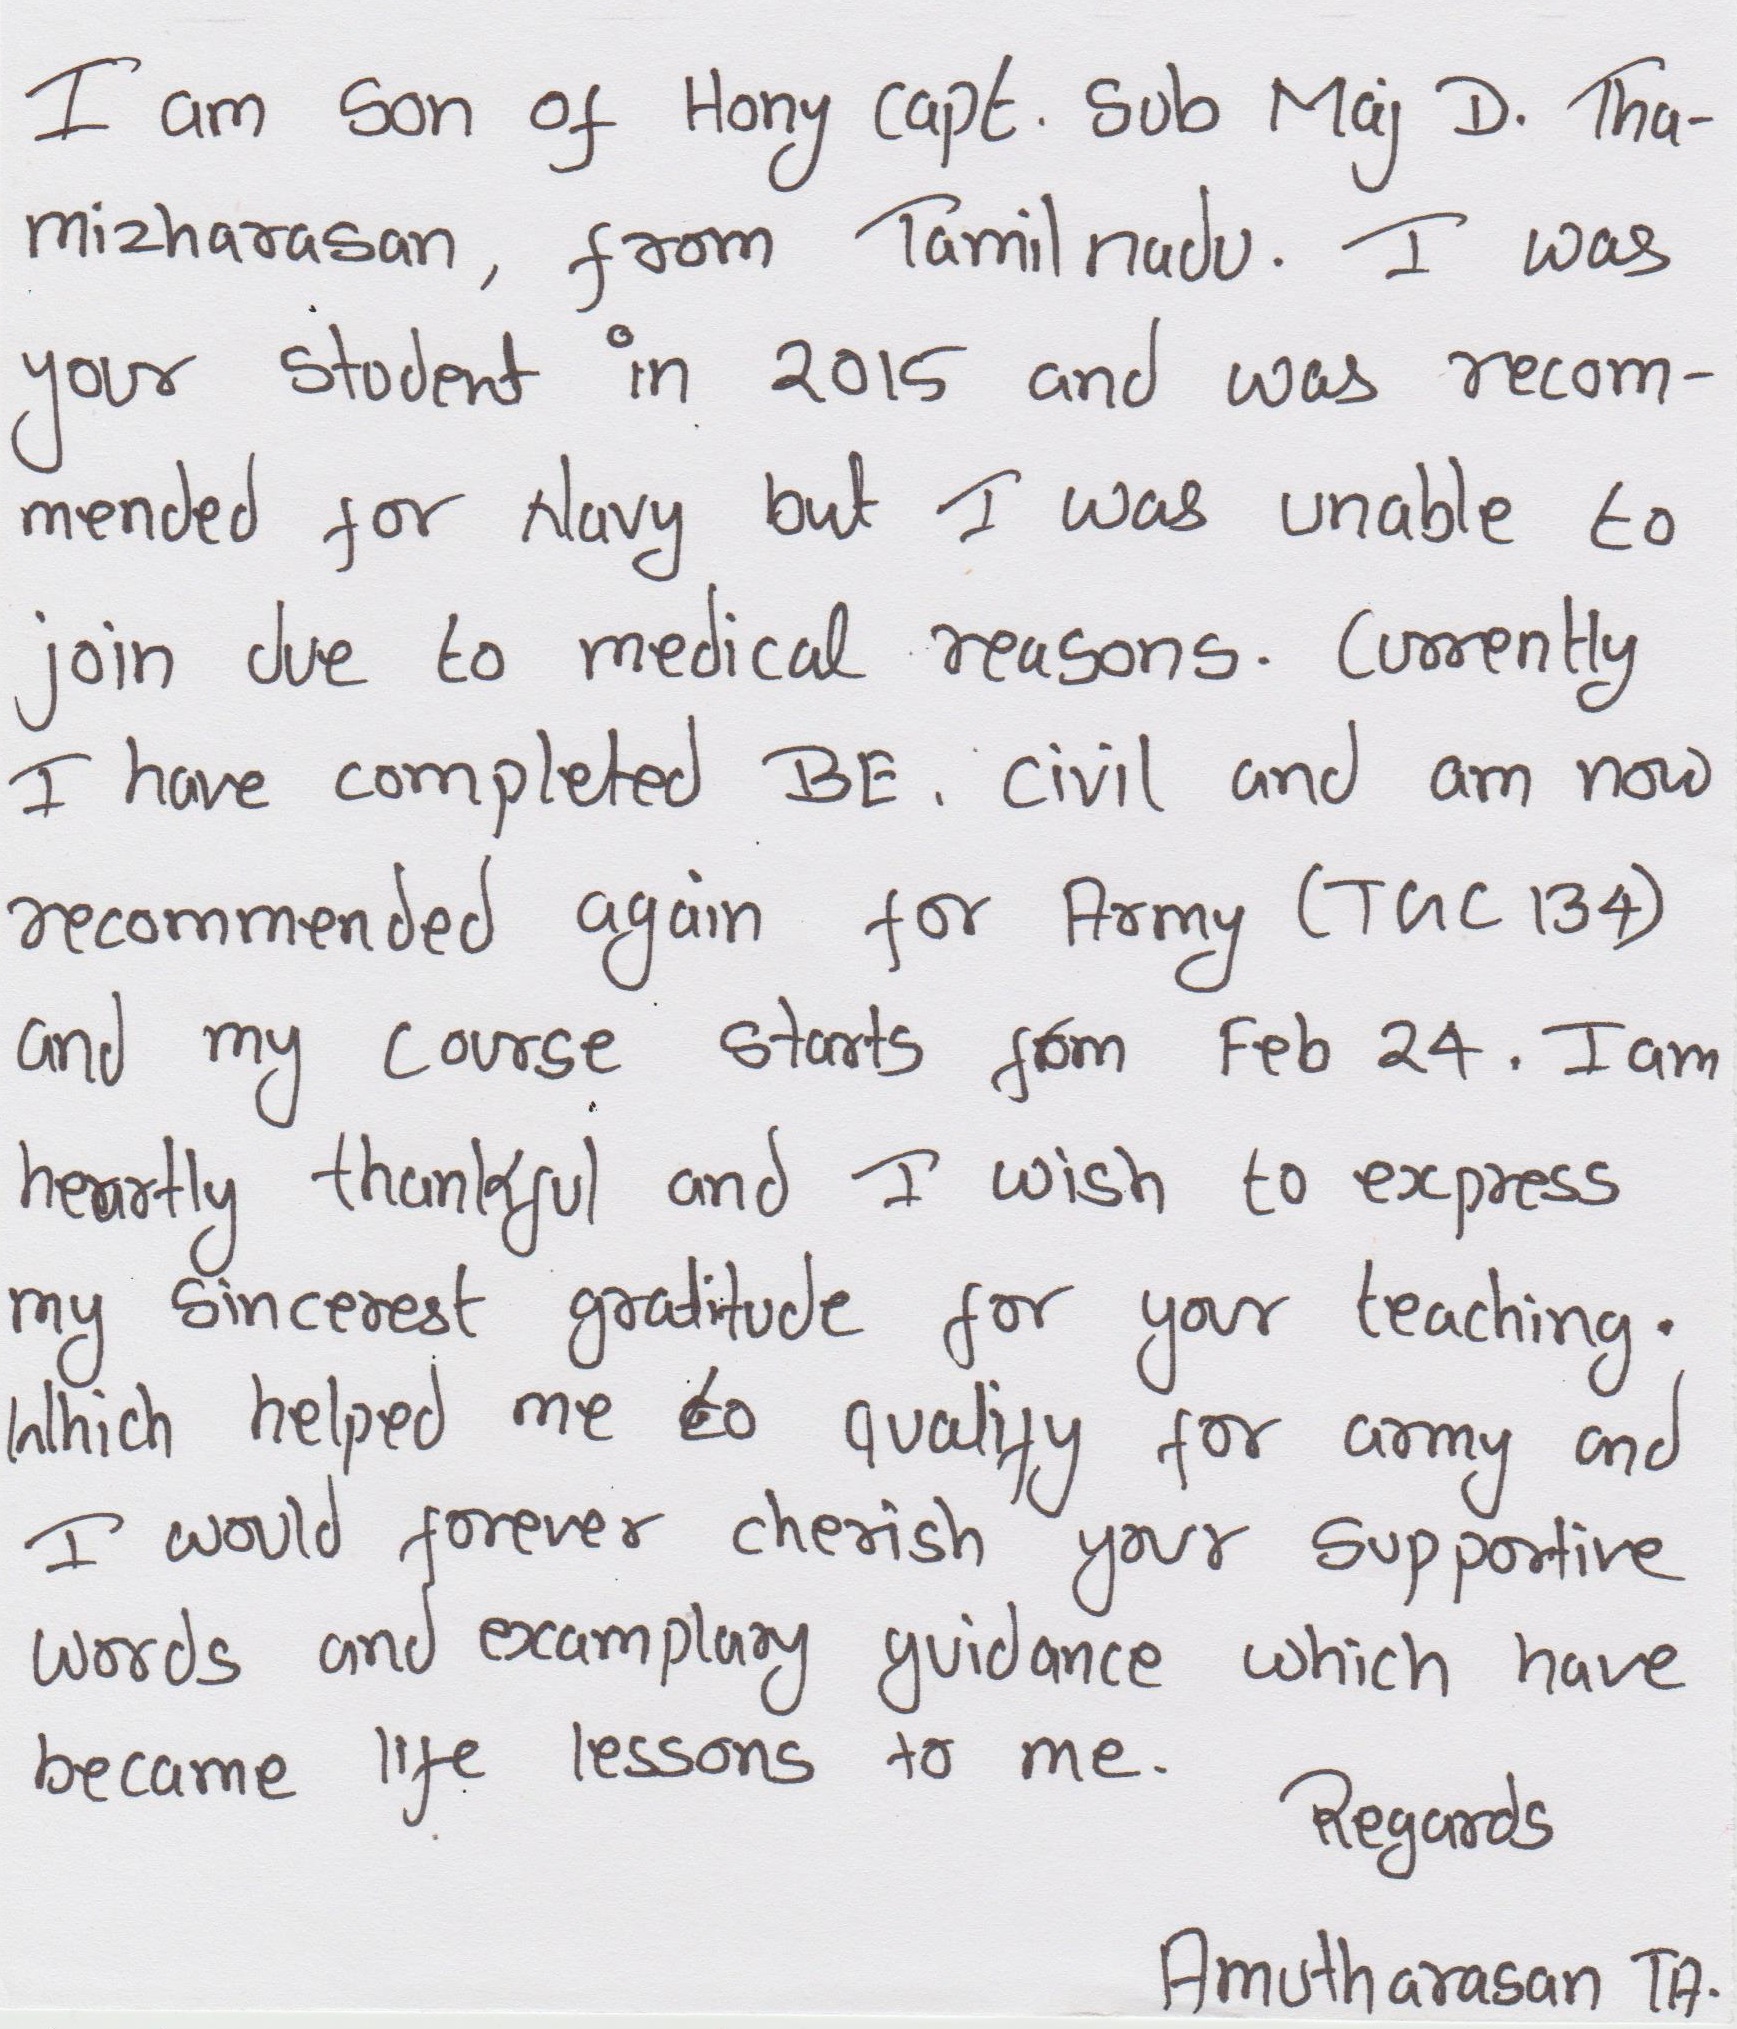 I am son of Hony Capt. Sub Maj D. Tha-
mizharasan, from Tamil nadu. I was
your student in 2015 and was recom-
mended for Navy but I was unable to
join due to medical reasons. Currently
I have completed BE. civil and am now
recommended again for Army (TGC 134)
and my course starts from Feb 24. I am
heartly thankful and I wish to express
my sincerest gratitude for your teaching.
Which helped me to qualify for army and
I would forever cherish your supportive
words and examplary guidance which have
became life lessons to me.
Regards
Amutharasan TA.